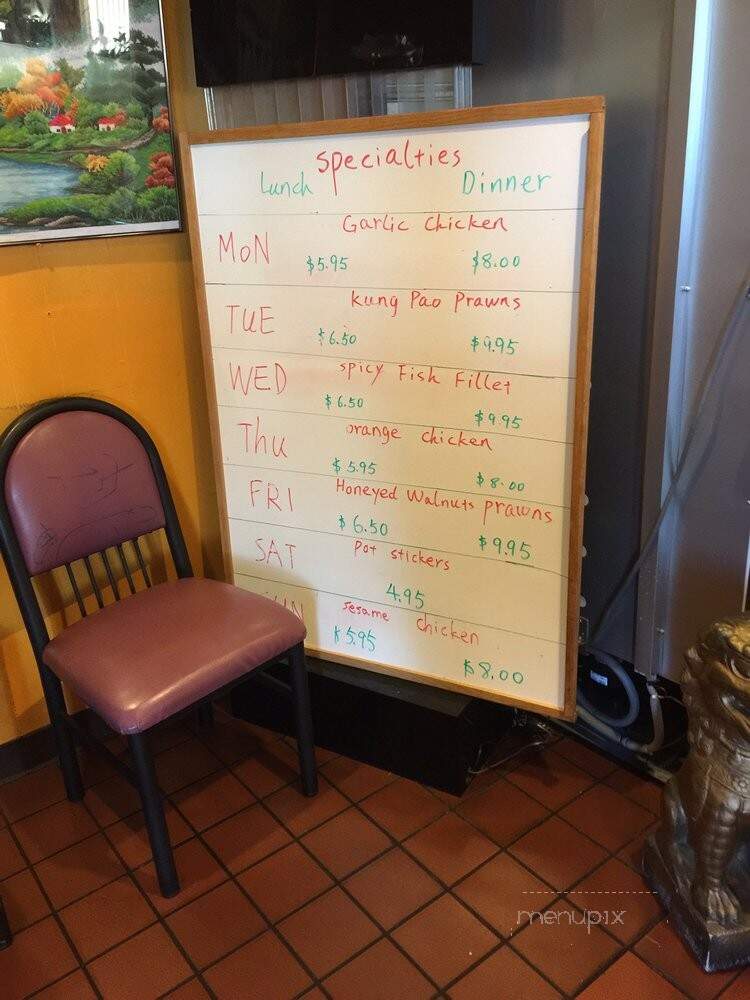 Specialties
Lunch Dinner
Garlic Chicken
MON $5.95 $8.00
kung Pao Prawns
TUE $6.50 $9.95
spicy Fish Fillet
WED $6.50 $9.95
orange chicken
Thu $5.95 $8.00
Honeyed Walnuts prawns
FRI $6.50 $9.95
Pot stickers
SAT 4.95
sesame chicken
$5.95 $8.00
menupix